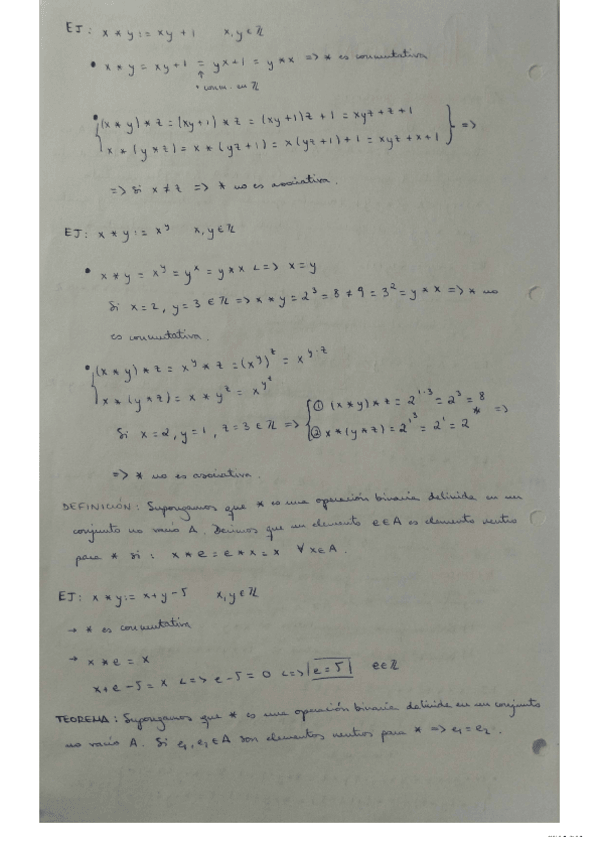 EJ: x * y := xy + 1   x, y ∈ ℤ
• x * y = xy + 1 = yx + 1 = y * x => * es conmutativa
↑
• conm. en ℤ
• (x * y) * z = (xy+1) * z = (xy+1)z + 1 = xyz + z + 1
x * (y * z) = x * (yz+1) = x(yz+1) + 1 = xyz + x + 1 } =>
=> Si x ≠ z => * no es asociativa.
EJ: x * y := x^y   x, y ∈ ℤ
• x * y = x^y = y^x = y * x <=> x = y
Si x = 2, y = 3 ∈ ℤ => x * y = 2^3 = 8 ≠ 9 = 3^2 = y * x => * no
es conmutativa.
• (x * y) * z = x^y * z = (x^y)^z = x^{y·z}
x * (y * z) = x * y^z = x^{y^z}
Si x = 2, y = 1, z = 3 ∈ ℤ => { ① (x * y) * z = 2^{1·3} = 2^3 = 8
② x * (y * z) = 2^{1^3} = 2^1 = 2 * =>
=> * no es asociativa.
DEFINICIÓN: Supongamos que * es una operación binaria definida en un
conjunto no vacío A. Decimos que un elemento e ∈ A es elemento neutro
para * si: x * e = e * x = x ∀ x ∈ A.
EJ: x * y := x + y - 5   x, y ∈ ℤ
→ * es conmutativa
→ x * e = x
x + e - 5 = x <=> e - 5 = 0 <=> |e = 5|   e ∈ ℤ
TEOREMA: Supongamos que * es una operación binaria definida en un conjunto
no vacío A. Si e₁, e₂ ∈ A son elementos neutros para * => e₁ = e₂.